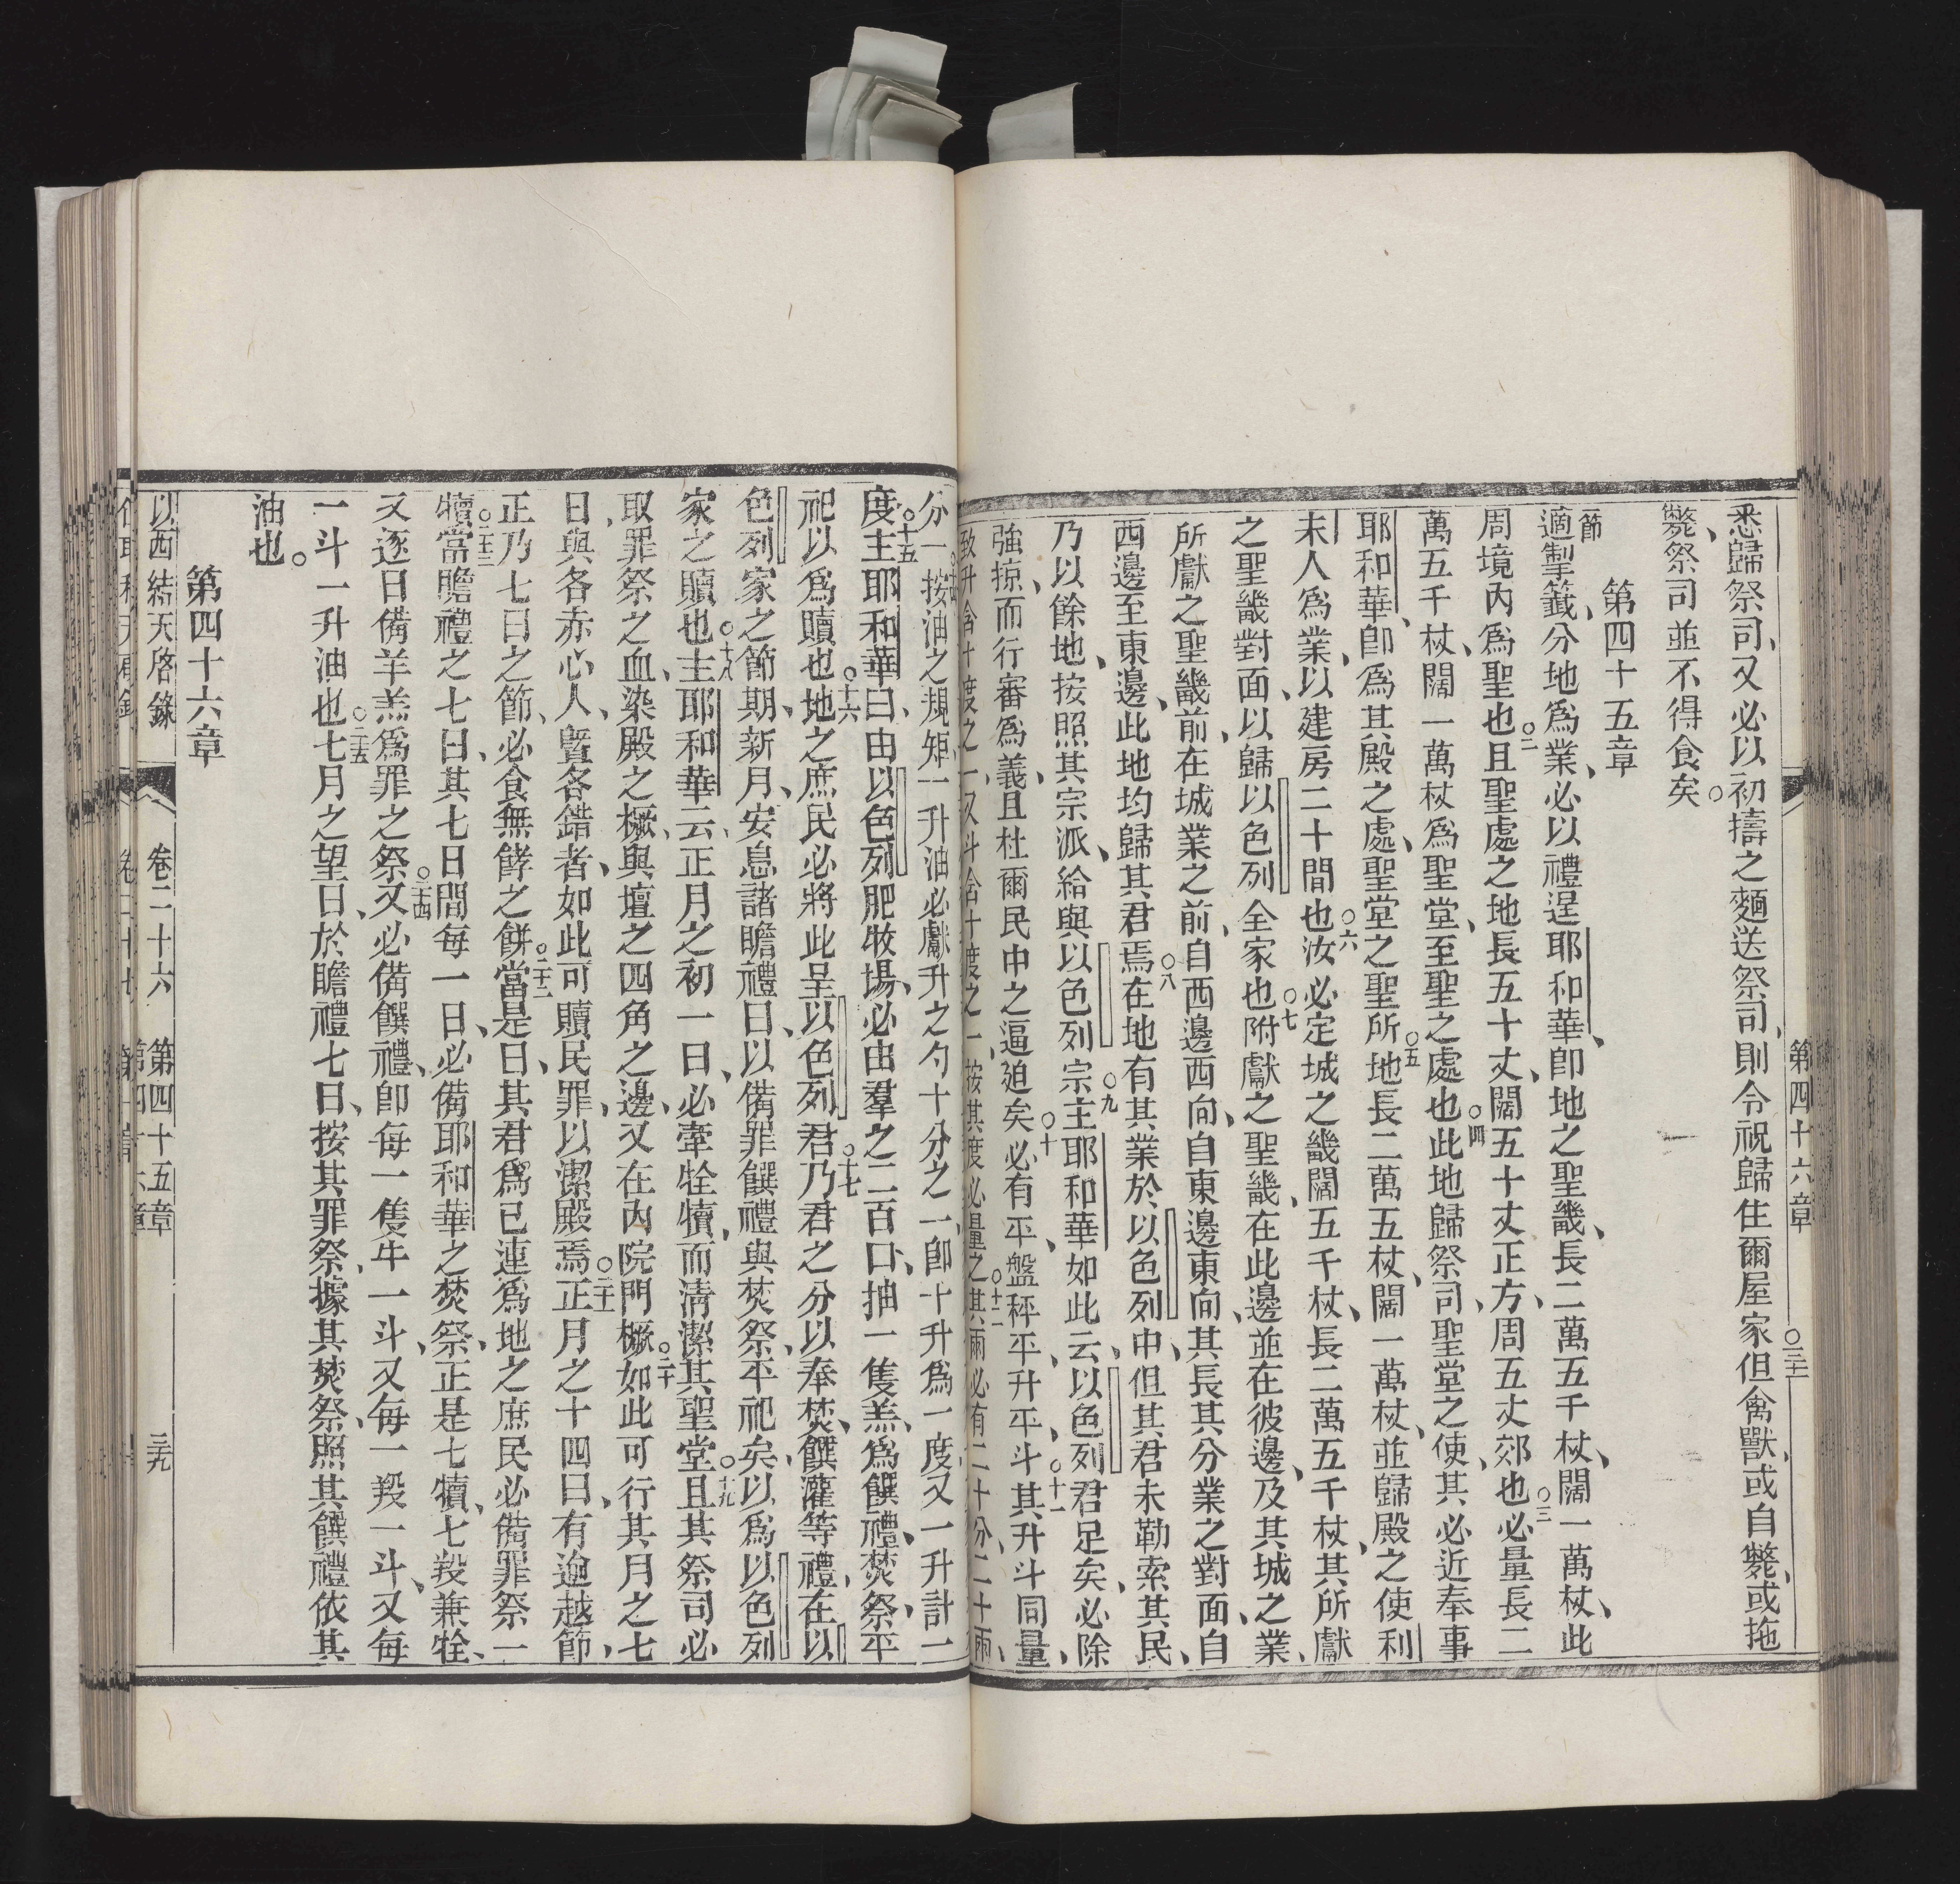 第四十六章
悉歸祭司、又必以初擣之麵送祭司、則令祝歸住爾屋家○三十一但禽獸、或自斃、或拖
斃、祭司並不得食矣。
第四十五章
節
適掣籤、分地爲業、必以禮逞耶和華、卽地之聖畿、長二萬五千杖、闊一萬杖、此
周境內爲聖也○二且聖處之地長五十丈、闊五十丈正方、周五丈郊也○三必量長二
萬五千杖、闊一萬杖爲聖堂、至聖之處也○四此地歸祭司、聖堂之使、其必近奉事
耶和華、卽爲其殿之處、聖堂之聖所○五地長二萬五杖、闊一萬杖、並歸殿之使利
未人爲業、以建房二十間也○六汝必定城之畿闊五千杖、長二萬五千杖、其所獻
之聖畿對面、以歸以色列全家也○七附獻之聖畿、在此邊並在彼邊、及其城之業、
所獻之聖畿前、在城業之前、自西邊西向、自東邊東向、其長其分業之對面、自
西邊至東邊、此地均歸其君焉○八在地有其業於以色列中、但其君未勒索其民、
乃以餘地、按照其宗派、給與以色列○九宗主耶和華如此云、以色列君足矣、必除
強掠、而行審爲義、且杜爾民中之逼廹矣○十必有平盤秤、平升平斗○十一其升斗同量、
致升含十度之一、又斗含十度之一、按其度必量之○十二其兩必有二十分、二十兩、
分一○十四按油之規矩、一升油必獻升之勺十分之一、卽十升爲一度、又一升計一
度○十五主耶和華曰、由以色列肥牧場、必由羣之二百口、抽一隻羔、爲饌禮、焚祭、平
祀、以爲贖也○十六地之庶民必將此呈以色列君○十七乃君之分以奉焚、饌灌等禮、在以
色列家之節期、新月、安息諸瞻禮日、以備罪饌禮、與焚祭、平祀矣、以爲以色列
家之贖也○十八主耶和華云、正月之初一日、必牽牷犢、而清潔其聖堂○十九且其祭司必
取罪祭之血、染殿之橛、與壇之四角之邊、又在內院門橛○二十如此可行其月之七
日、與各赤心人、曁各錯者、如此可贖民罪、以潔殿焉○二十一正月之十四日、有逾越節、
正乃七日之節、必食無餑之餅○二十二當是日、其君爲己連爲地之庶民、必備罪祭一
犢○二十三當瞻禮之七日、其七日間每一日、必備耶和華之焚祭、正是七犢、七羖兼牷、
又逐日備羊羔爲罪之祭○二十四又必備饌禮、卽每一隻牛一斗、又每一羖一斗、又每
一斗一升油也○二十五七月之望日、於瞻禮七日、按其罪祭、據其焚祭、照其饌禮、依其
油也。
第四十六章
以西結天啓錄 卷二十六 第四十五章 三十九
第四十六章